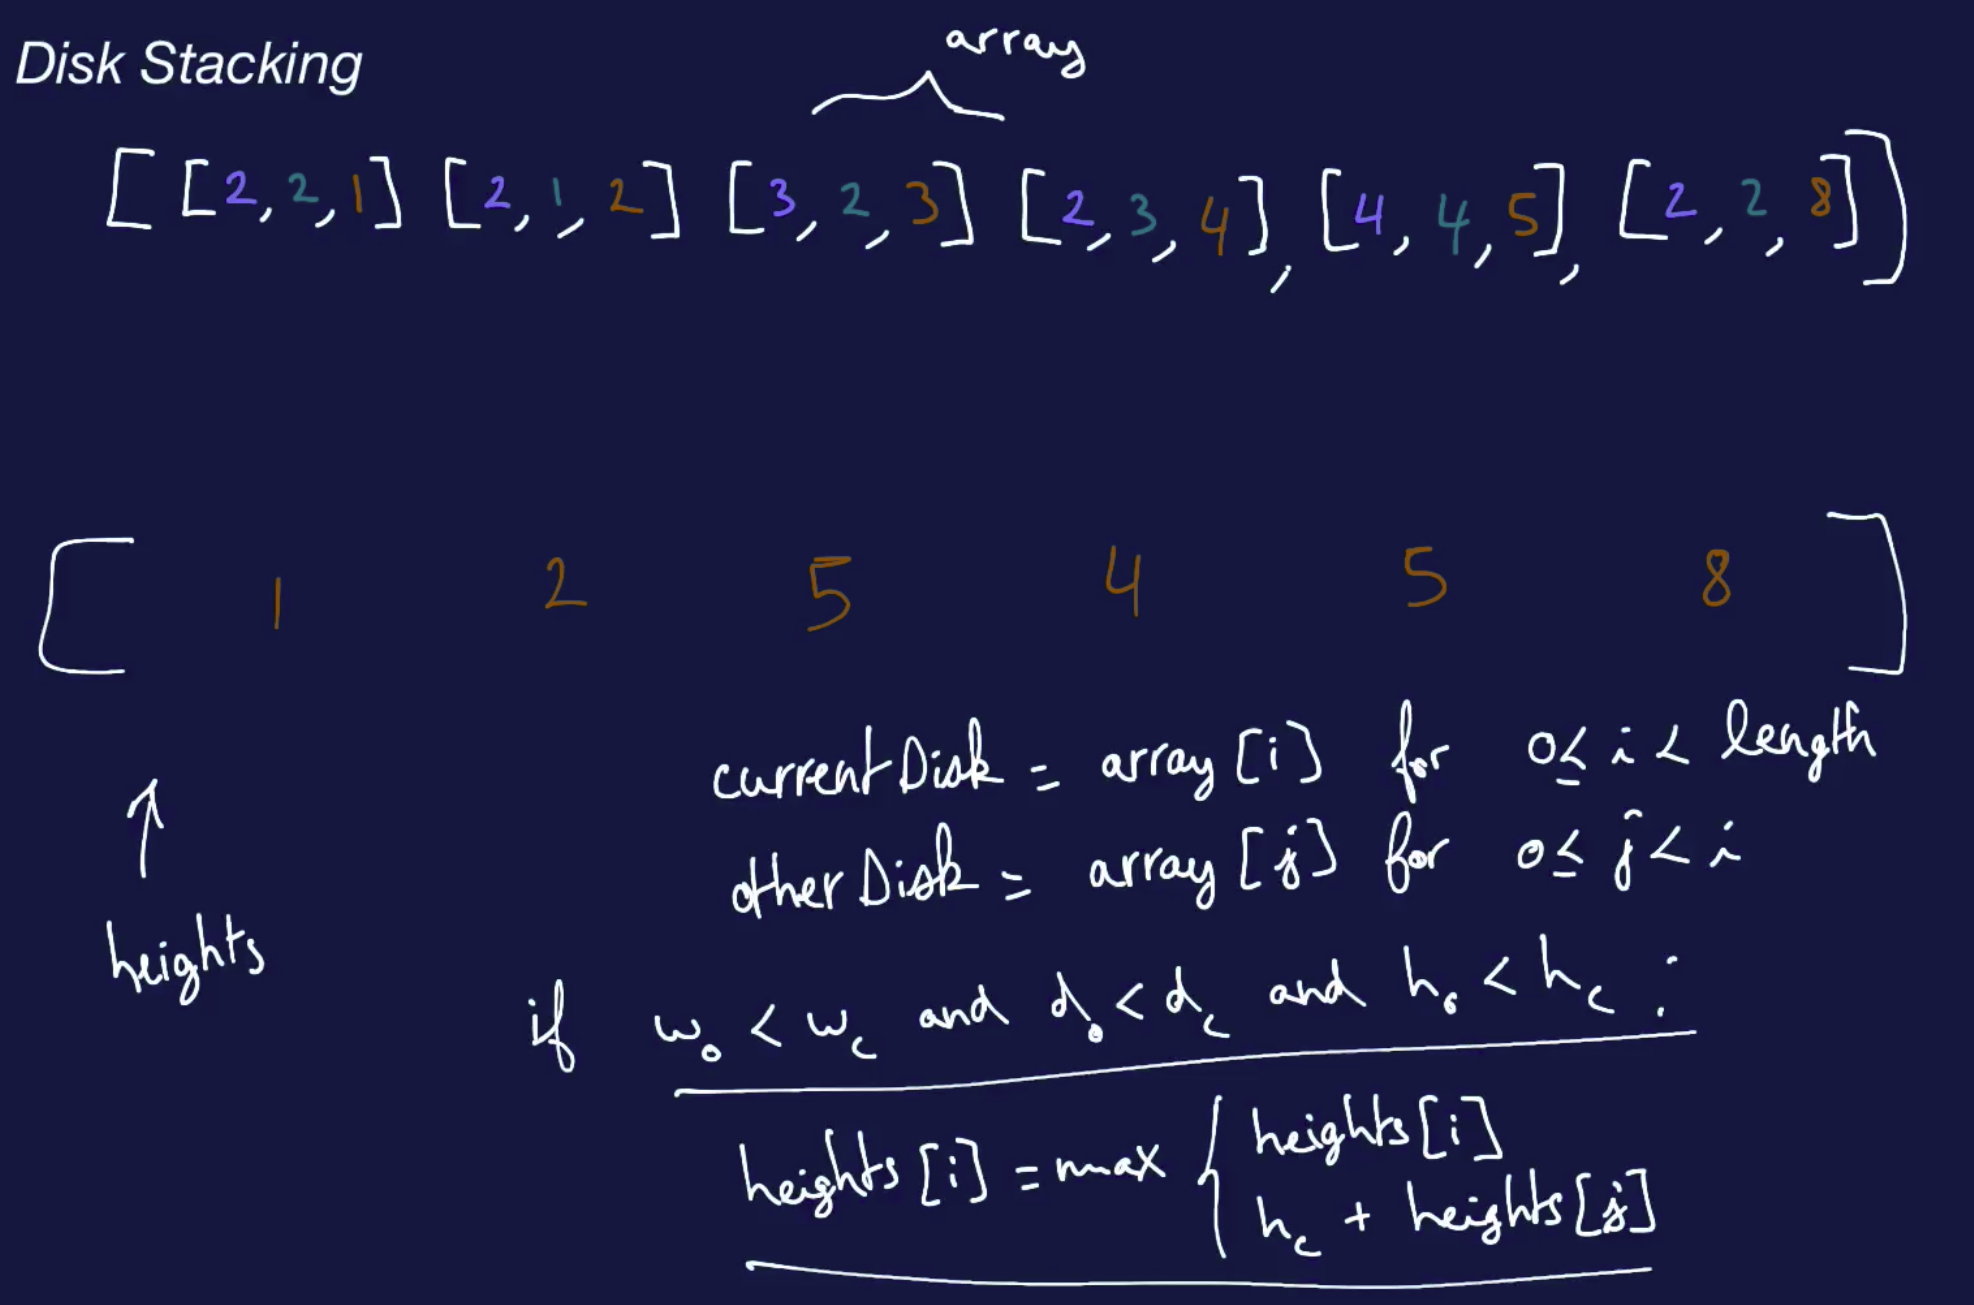 Disk Stacking
array
[[2,2,1] [2,1,2] [3,2,3] [2,3,4], [4,4,5], [2,2,8]]
[ 1 2 5 4 5 8 ]
currentDisk = array[i] for 0≤ i < length
otherDisk = array[j] for 0≤ j < i
heights
if w₀ < w_c and d₀ < d_c and h₀ < h_c :
heights[i] = max { heights[i]
h_c + heights[j]